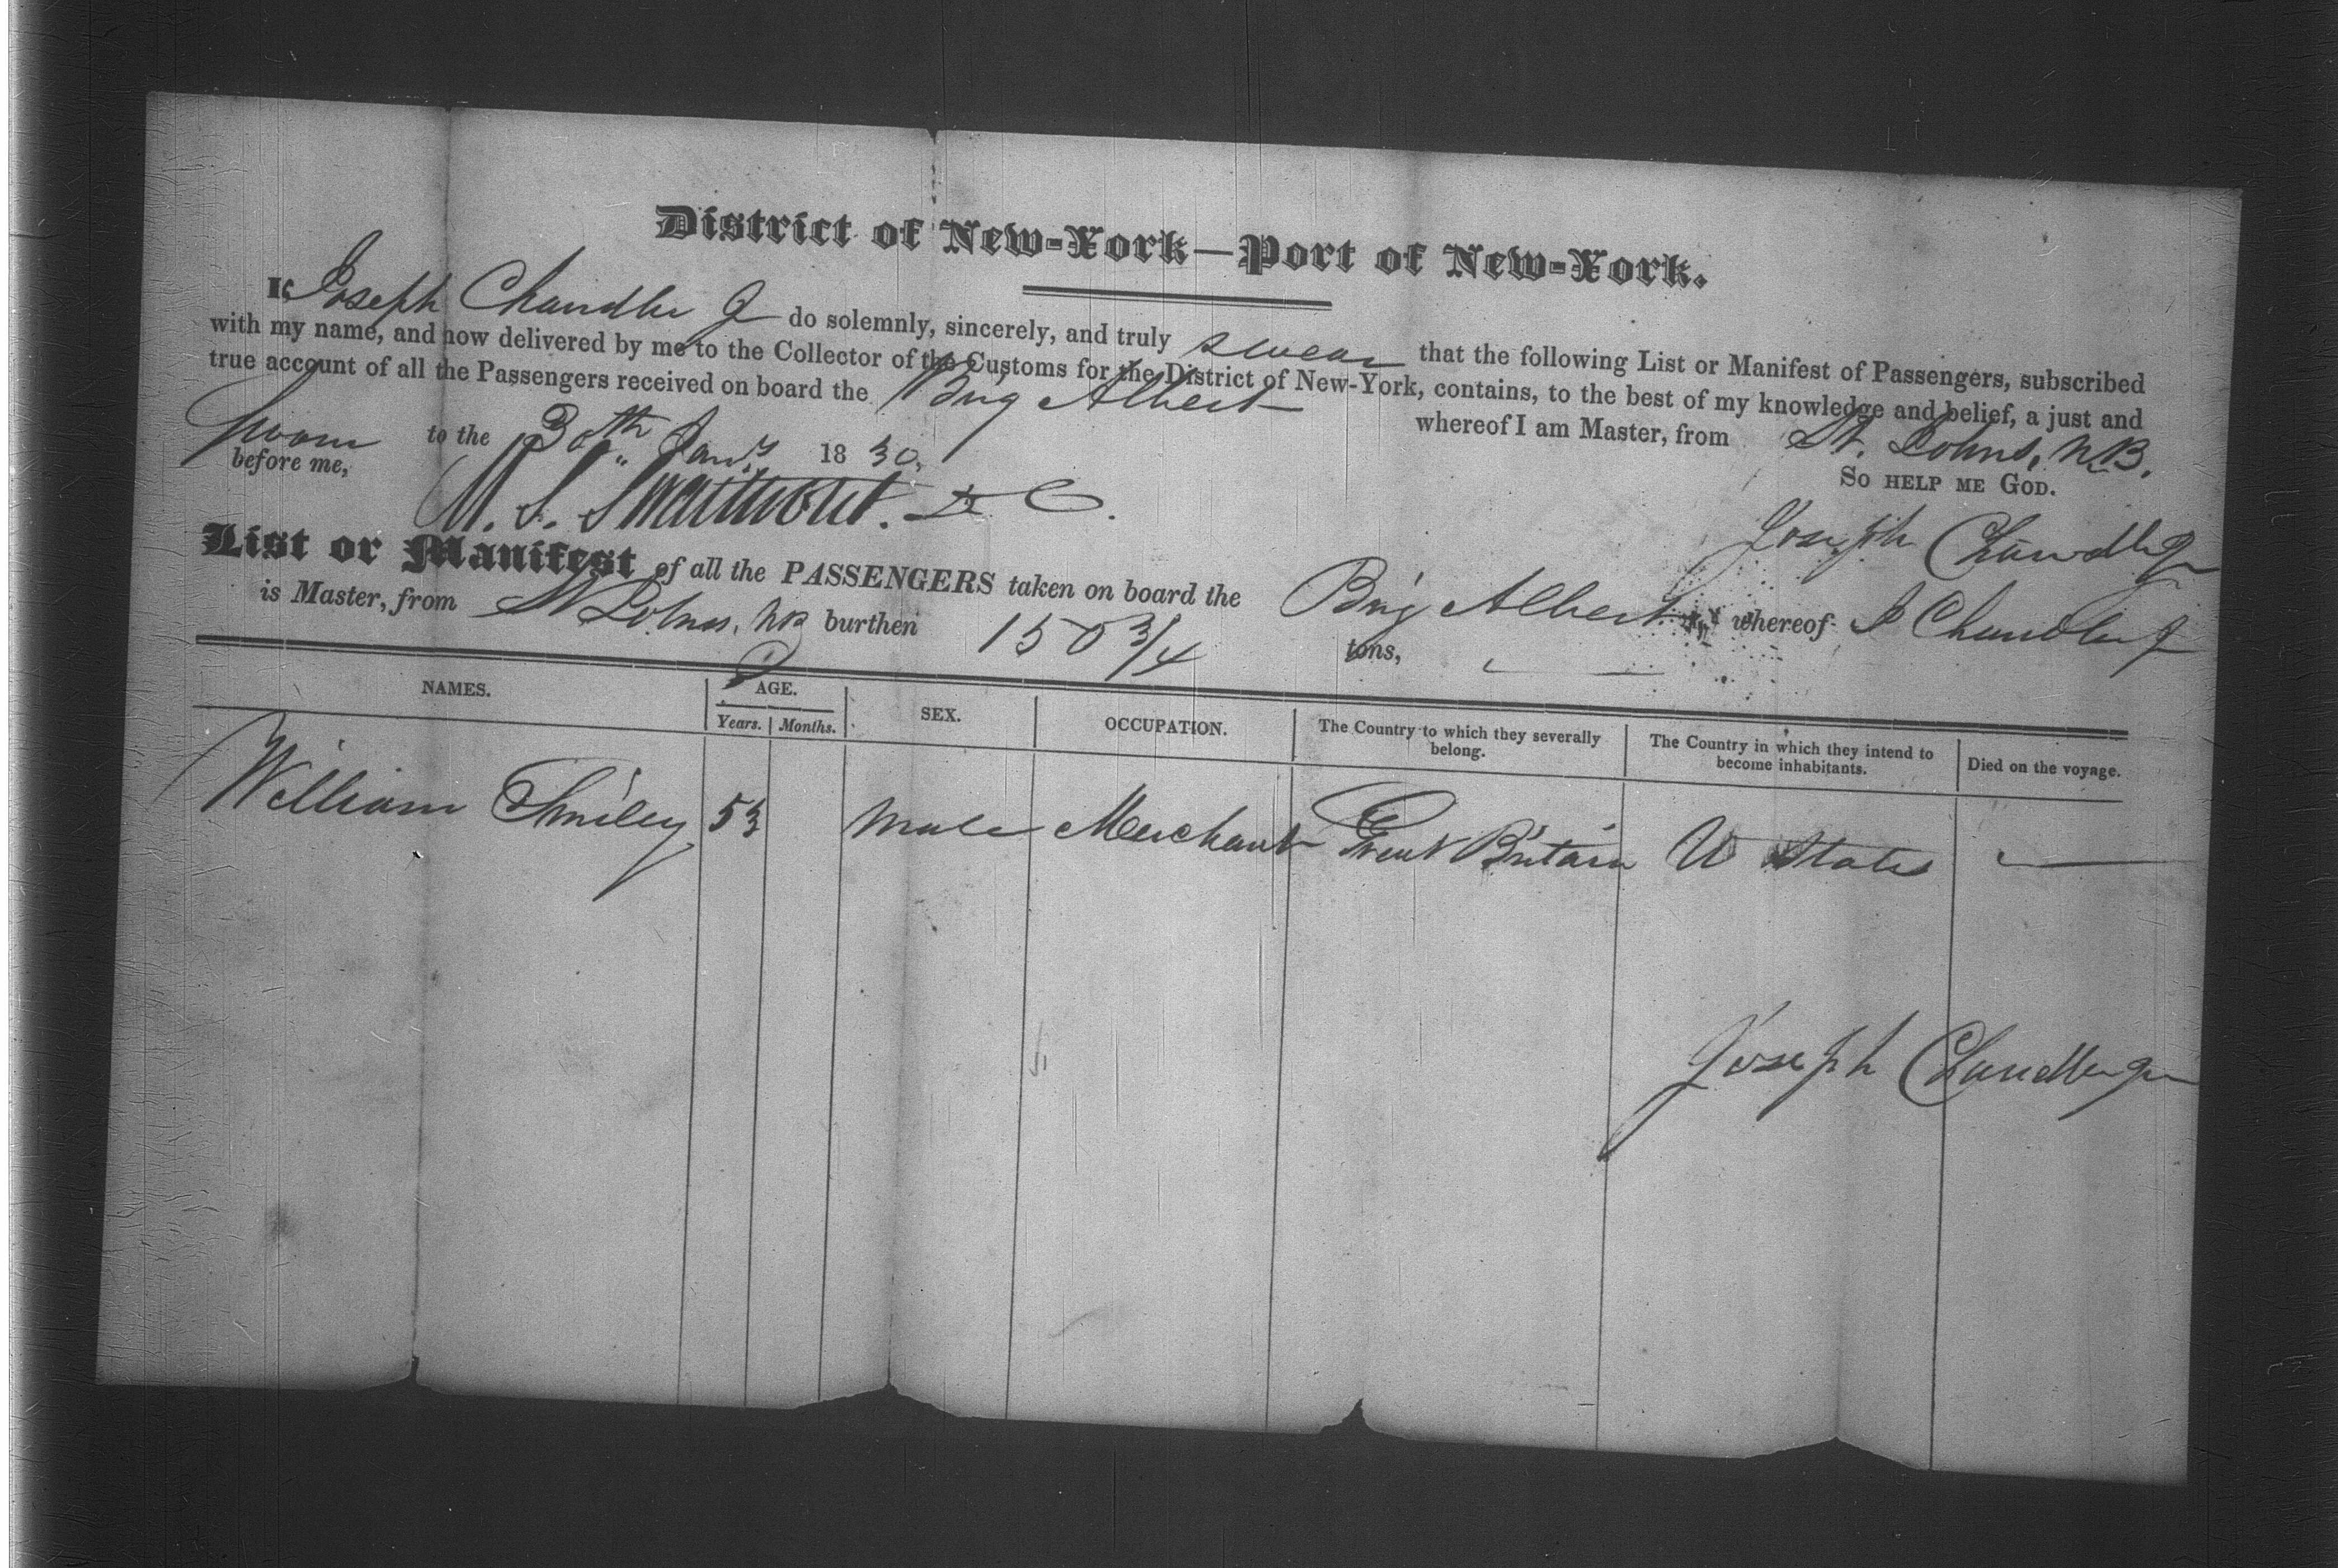 District of New-York—Port of New-York.
I, Joseph Chandler J do solemnly, sincerely, and truly swear that the following List or Manifest of Passengers, subscribed
with my name, and now delivered by me to the Collector of the Customs for the District of New-York, contains, to the best of my knowledge and belief, a just and
true account of all the Passengers received on board the Brig Albert whereof I am Master, from St. Johns, N.B.
Sworn to the 30th Jany 1830. So help me God.
before me, M. S. Swartwout. D C. Joseph Chandler Jr
List or Manifest of all the PASSENGERS taken on board the Brig Albert whereof J Chandler J
is Master, from St Johns, NB burthen 150 3/4 tons,
NAMES. AGE. SEX. OCCUPATION. The Country to which they severally belong. The Country in which they intend to become inhabitants. Died on the voyage.
Years. Months.
William Smiley 53 Male Merchant Great Britain U States —
Joseph Chandler Jr